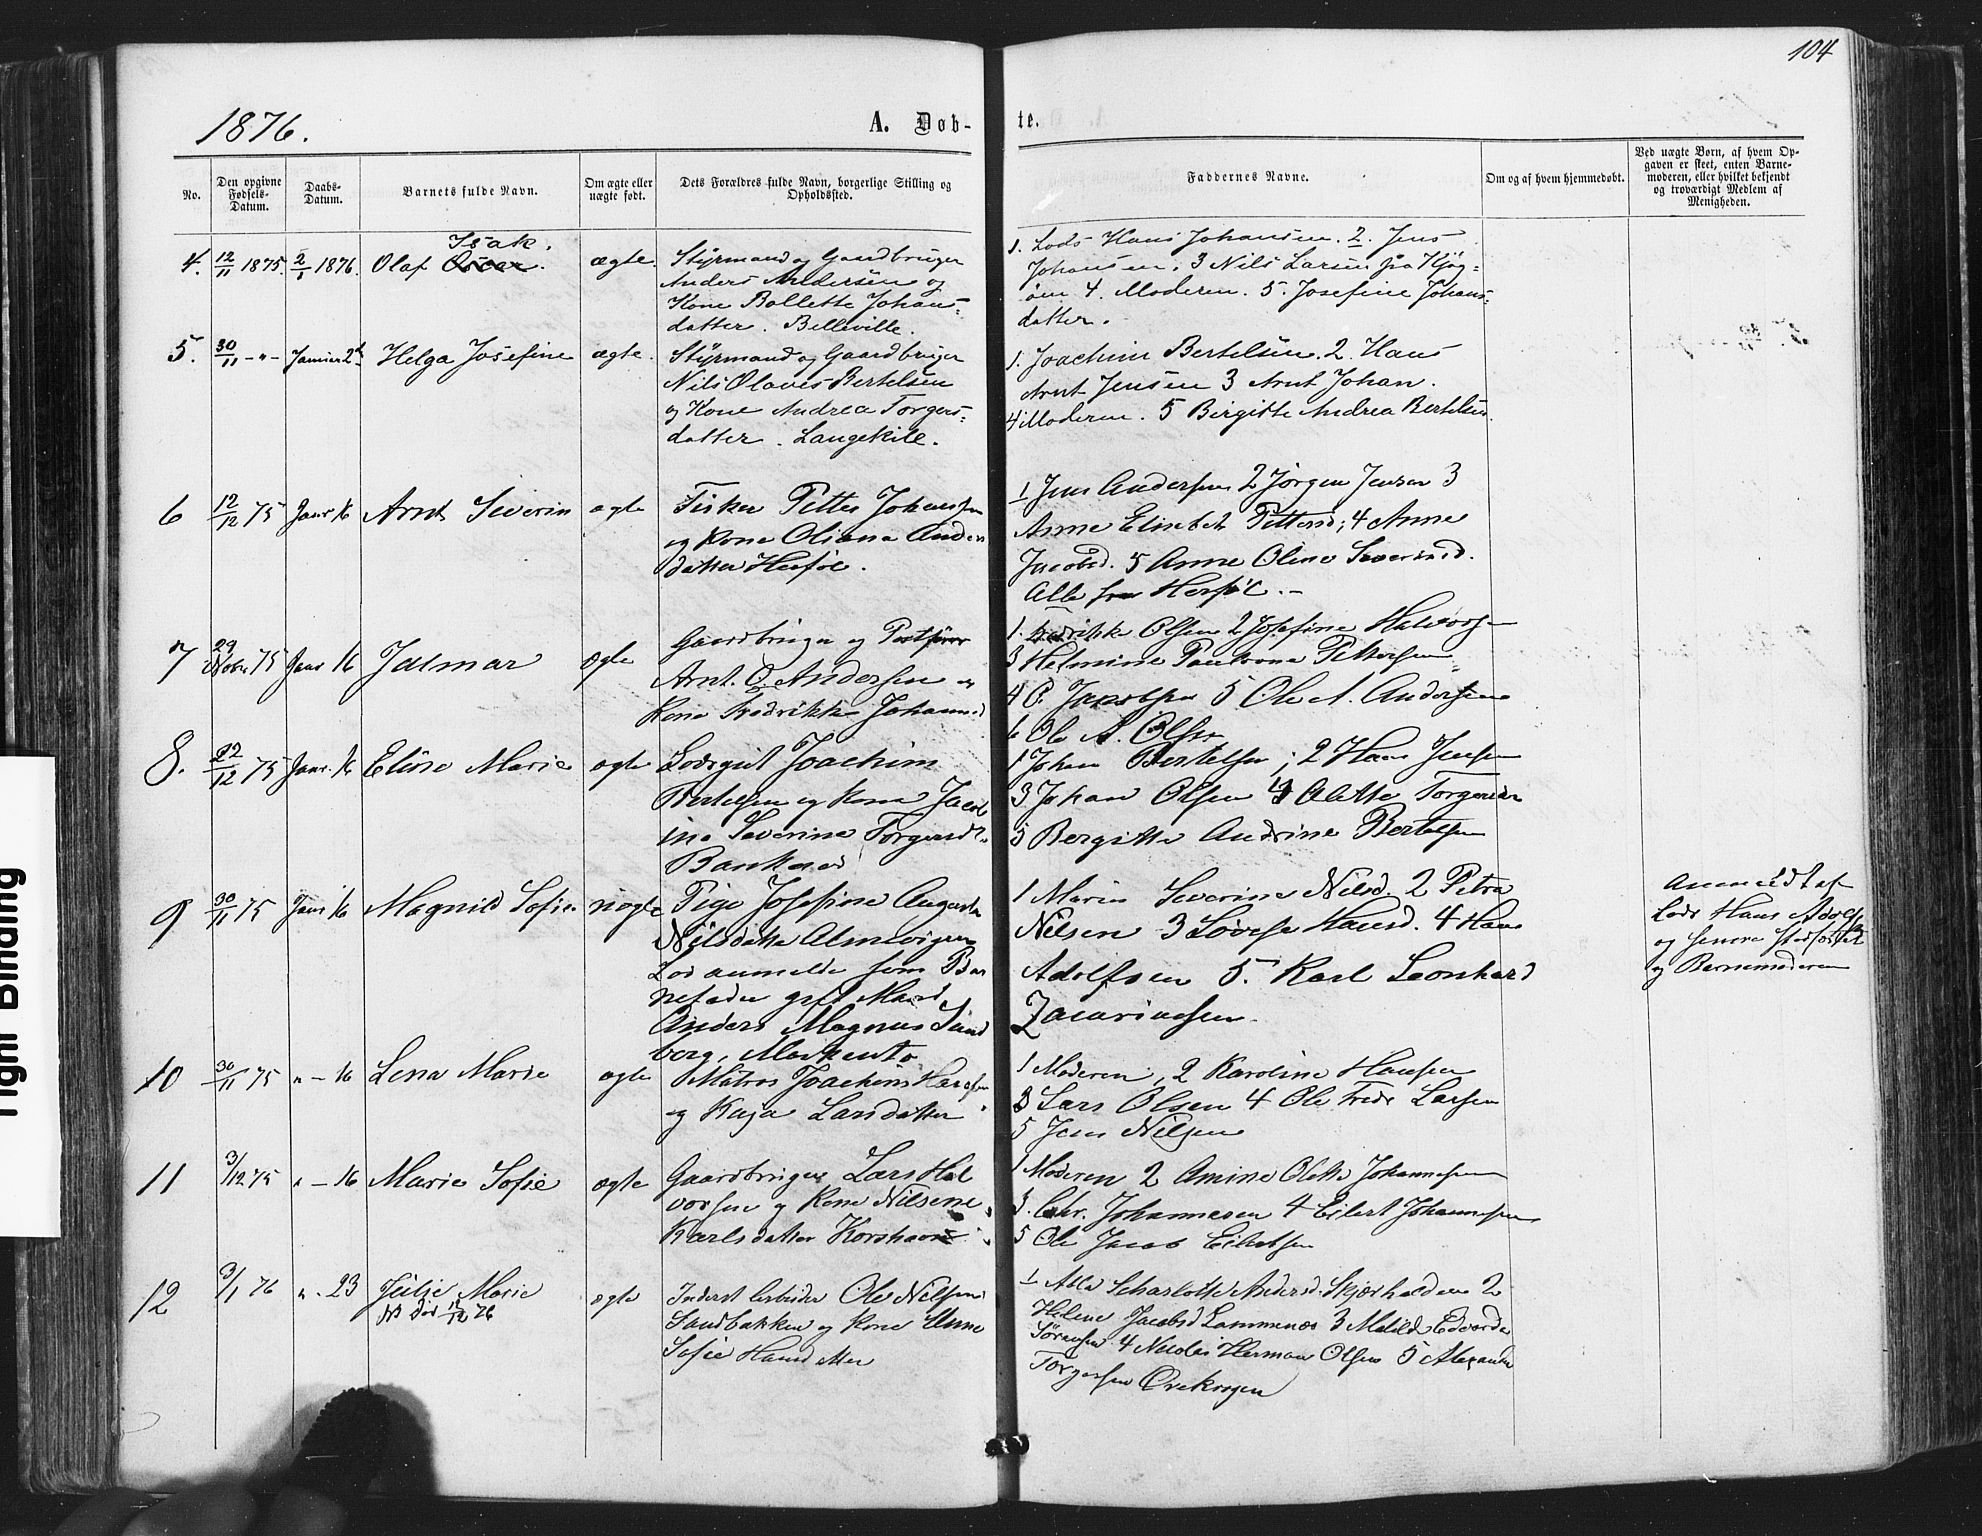 104
1876.
A. Døb-
te.
No.
Den opgivne Fødsels-Datum.
Daabs-Datum.
Barnets fulde Navn.
Om ægte eller uægte født.
Dets Forældres fulde Navn, borgerlige Stilling og Opholdssted.
Faddernes Navne.
Om og af hvem hjemmedøbt.
Ved uægte Børn, af hvem Op-
gaven er skeet, enten Barne-
moderen, eller hvilket bekjendt
og troværdigt Medlem af
Menigheden.
Isak.
4. 12/11 1875. 2/1 1876. Olaf Oscar. ægte.
Styrmand og Gaardbruger
Anders Andersen og
Kone Bollette Johans-
datter. Belleville.
1. Lods Hans Johansen. 2. Jens
Johansen. 3 Nils Larsen fra Kjøg-
øen 4. Moderen. 5. Josefine Johans-
datter.
5. 30/11 -"- Januar 2d Helga Josefine ægte.
Styrmand og Gaardbruger
Nils Olaves Bertelsen
og Kone Andrea Torgers-
datter. Langekile.
1. Joachim Bertelsen. 2. Hans
Arnt Jensen 3 Arnt Johan.
4 Moderen. 5 Birgitte Andrea Bertelsen.
6 12/12 75 Janr 16 Arnt Severin ægte
Fisker Petter Johansen
og Kone Oliana Anders
datter Herføl.
1 Jens Andersen 2 Jørgen Jensen 3
Anne Elisabet Pettersd; 4 Anne
Jacobsd. 5 Anne Oline Severinsd.
Alle fra Herføl. -
7 29 Nobr. 75 Janr 16 Jalmar ægte
Gaardbruger og Postfører
Arnt. O. Andersen og
Kone Fredrikke Johannsd
1. Fredrikke Olsen 2 Josefine Halvorsen
3 Helmine Paulrona Pettersen
4 O. Jacobsen 5 Ole A. Andersen
6 Ole A. Olsen
8. 22/12 75 Janr. 16 Elise Marie ægte
Lodsgut Joachim
Bertelsen og Kone Jacob
ine Severine Torgersdtr
Bankerød
1 Johan Bertelsen; 2 Hans Jensen
3 Johan Olsen 4 Alette Torgersen
5 Bergitte Andrine Bertelsen
9 30/11 75 Janr 16 Magnild Sofie uægte
Pige Josefine Augusta
Nilsdatter Almevigen
Lod anmelde som Bar
nefader gift Mand
Anders Magnus Sund
berg,
1 Marie Severine Nilsd. 2 Petra
Nilsen 3 Lovise Hansd. 4 Hans
Adolfsen 5. Karl Leonhard
Zacariassen.
Anmeldt af
Lods Hans Adolfs
og
og Barnemoderen
10 30/11 75 " - 16 Lena Marie ægte
Matros Joachim Hansen
og Kaja Larsdatter
1 Moderen, 2 Karoline Hansen
3 Lars Olsen 4 Ole Fredr Larsen
5 Jens Nilsen
11 3/12 75 " - 16 Marie Sofie ægte
Gaardbruger Lars Hal
vorsen og Kone Nilsine
Karlsdatter Korshavn
1 Moderen 2 Amine Olette Johannesen
3. Chr. Johannesen 4 Eilert Johannesen
5 Ole Jacob Eilertsen
12 3/1 76 " - 23 Julie Marie ægte
NB Død 12/12 76
Inderst Arbeider Ole Nilsen
Sandbakken og Kone Anne
Sofie Hansdatter
1 Alla Scharlotte Andersd. Skjærhalden 2
Helene Jacobsd Lammenæs 3 Matilde Edvarda
Sørensen 4 Nicolai Herman Olsen 5 Alexander
Torgersen Ørekrogen
Tight Binding